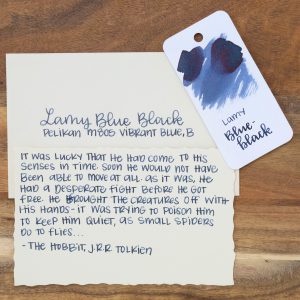 Lamy Blue Black
PELIKAN M805 VIBRANT BLUE, B
IT WAS LUCKY THAT HE HAD COME TO HIS
SENSES IN TIME. SOON HE WOULD NOT HAVE
BEEN ABLE TO MOVE AT ALL. AS IT WAS, HE
HAD A DESPERATE FIGHT BEFORE HE GOT
FREE. HE BROUGHT THE CREATURES OFF WITH
HIS HANDS - IT WAS TRYING TO POISON HIM
TO KEEP HIM QUIET, AS SMALL SPIDERS
DO TO FLIES...
- THE HOBBIT, J.R.R. TOLKIEN
Lamy
Blue-
black